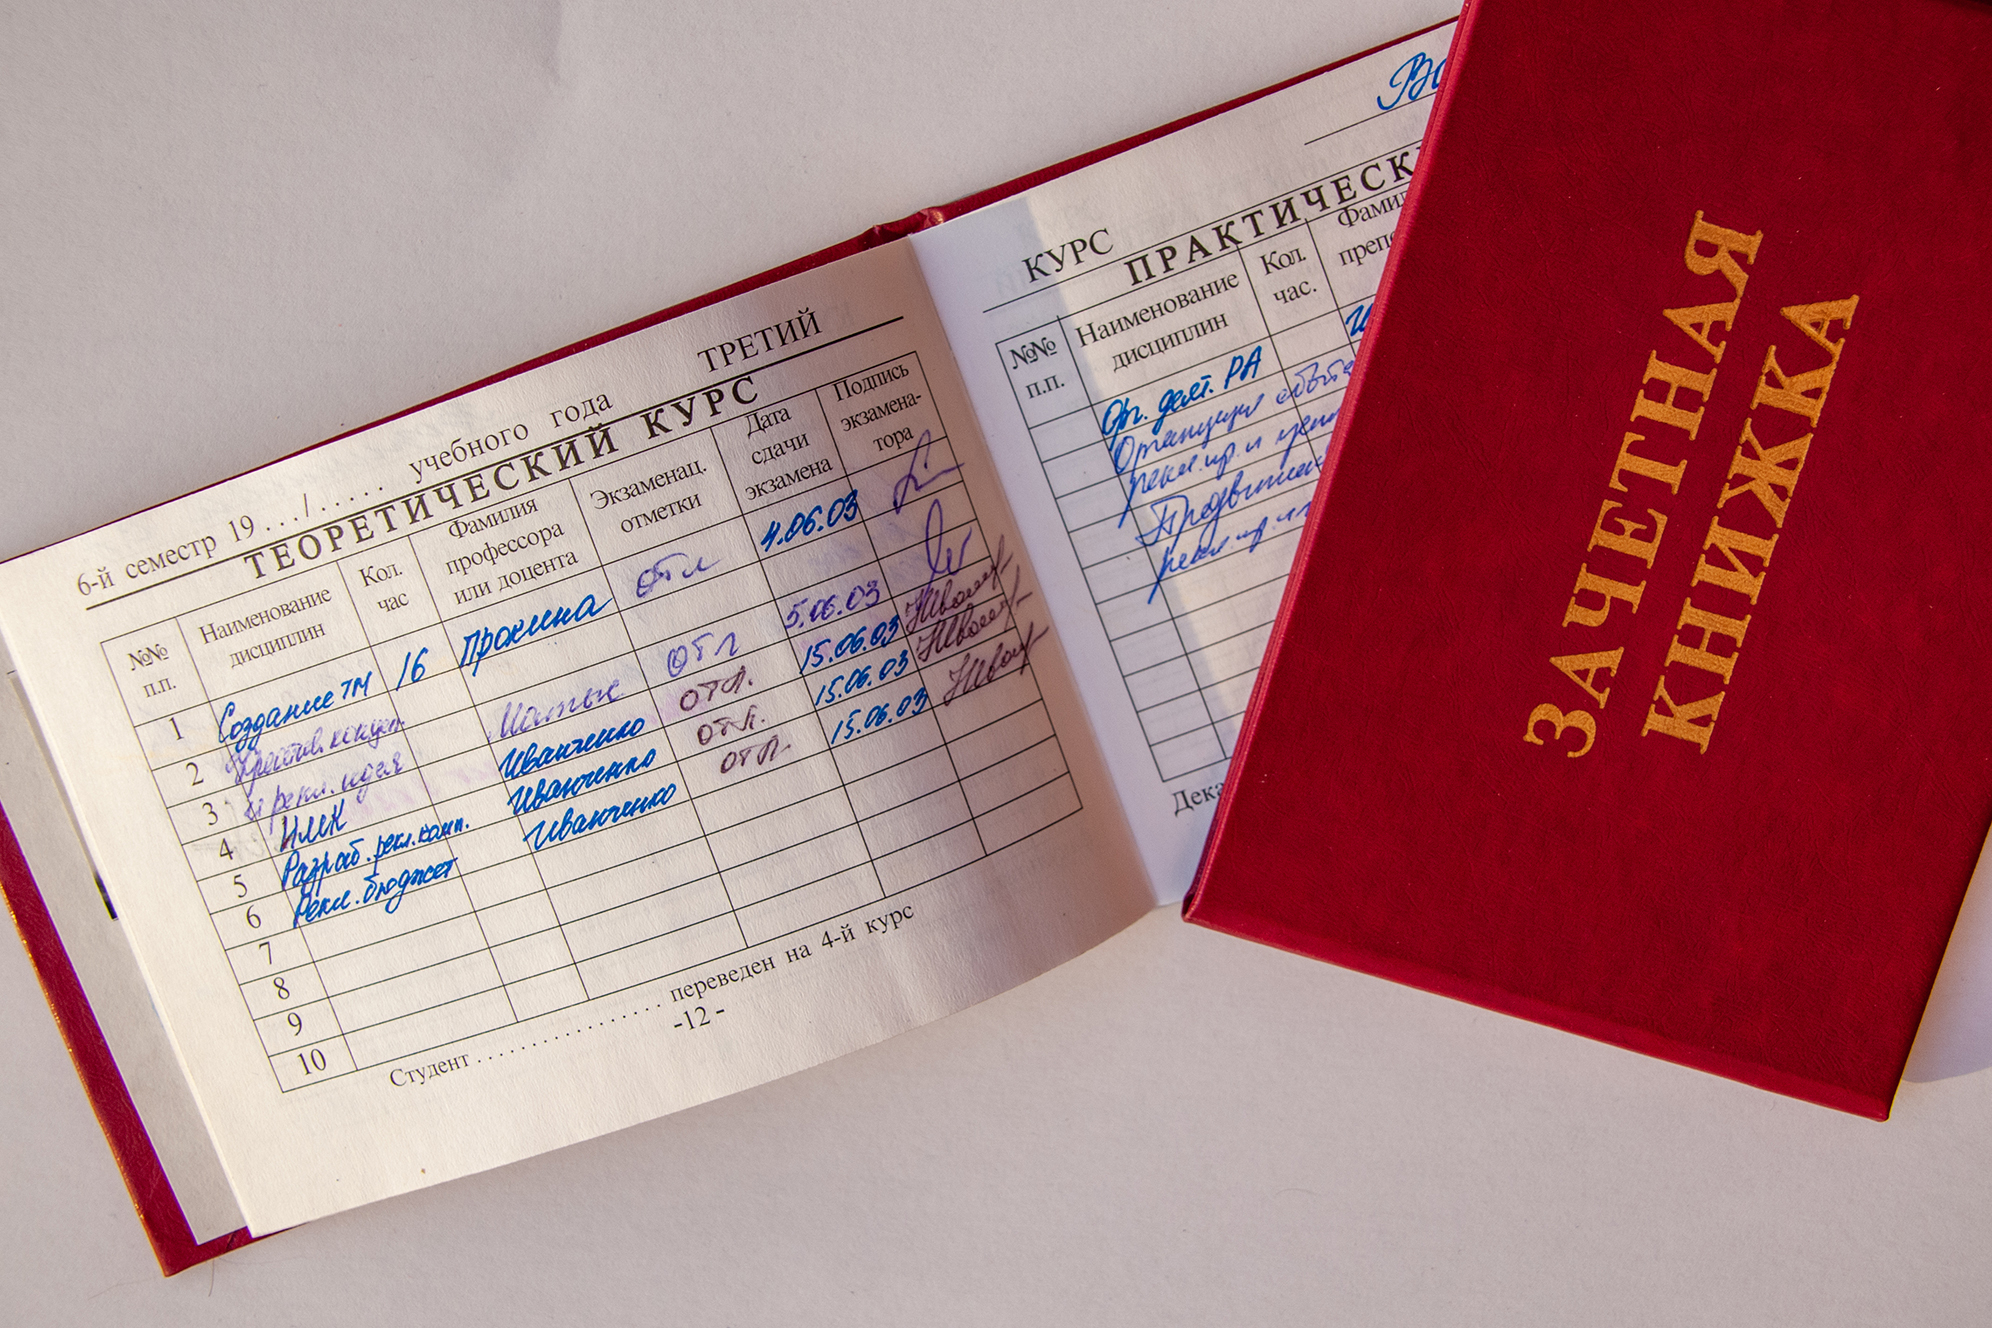 6-й семестр 19 . . . / . . . . . учебного года ТРЕТИЙ
ТЕОРЕТИЧЕСКИЙ КУРС
№№ п.п.
Наименование дисциплин
Кол. час
Фамилия профессора или доцента
Экзаменац. отметки
Дата сдачи экзамена
Подпись экзамена-тора
1 Создание ТМ 16 Пронина отл 4.06.03
2 Креатив. концеп.
3 и рекл. идея отл 5.06.03
4 ИМК Иванченко отл. 15.06.03
5 Разраб. рекл. камп. Иванченко отл. 15.06.03
6 Рекл. бюджет Иванченко отл. 15.06.03
7
8
9
10
Студент . . . . . . . . . . . . . . . . . переведен на 4-й курс
-12-
КУРС
ПРАКТИЧЕСК
№№ п.п.
Наименование дисциплин
Кол. час.
Фами
препо
Орг. деят. РА
Организация
рекл.
Продвижен
рекл.
Дека
ЗАЧЕТНАЯ
КНИЖКА